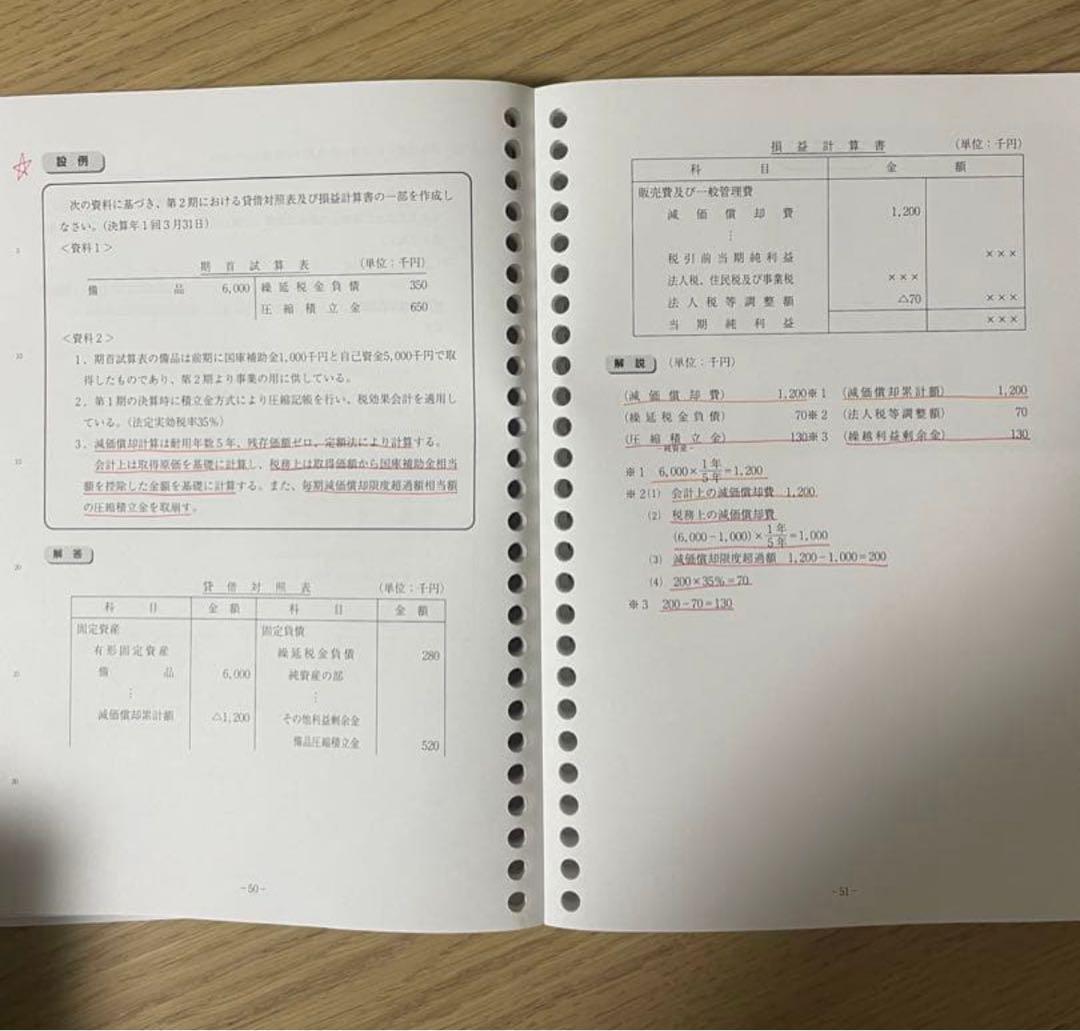 設例
次の資料に基づき、第2期における貸借対照表及び損益計算書の一部を作成し
なさい。(決算年1回3月31日)
<資料1>
期首試算表 (単位:千円)
備品 6,000 繰延税金負債 350
圧縮積立金 650
<資料2>
1．期首試算表の備品は前期に国庫補助金1,000千円と自己資金5,000千円で取
得したものであり、第2期より事業の用に供している。
2．第1期の決算時に積立金方式により圧縮記帳を行い、税効果会計を適用し
ている。(法定実効税率35%)
3．減価償却計算は耐用年数5年、残存価額ゼロ、定額法により計算する。
会計上は取得原価を基礎に計算し、税務上は取得価額から国庫補助金相当
額を控除した金額を基礎に計算する。また、毎期減価償却限度超過額相当額
の圧縮積立金を取崩す。
解答
貸借対照表 (単位:千円)
科目 金額 科目 金額
固定資産 固定負債
有形固定資産 繰延税金負債 280
備品 6,000 純資産の部
⋮ ⋮
減価償却累計額 △1,200 その他利益剰余金
備品圧縮積立金 520
5
10
15
20
25
30
-50-
損益計算書 (単位:千円)
科目 金額
販売費及び一般管理費
減価償却費 1,200
⋮
税引前当期純利益 ×××
法人税、住民税及び事業税 ×××
法人税等調整額 △70 ×××
当期純利益 ×××
解説 (単位:千円)
(減価償却費) 1,200※1 (減価償却累計額) 1,200
(繰延税金負債) 70※2 (法人税等調整額) 70
(圧縮積立金) 130※3 (繰越利益剰余金) 130
-純資産-
※1 6,000×1年/5年=1,200
※2(1) 会計上の減価償却費 1,200
(2) 税務上の減価償却費
(6,000-1,000)×1年/5年=1,000
(3) 減価償却限度超過額 1,200-1,000=200
(4) 200×35%=70
※3 200-70=130
-51-